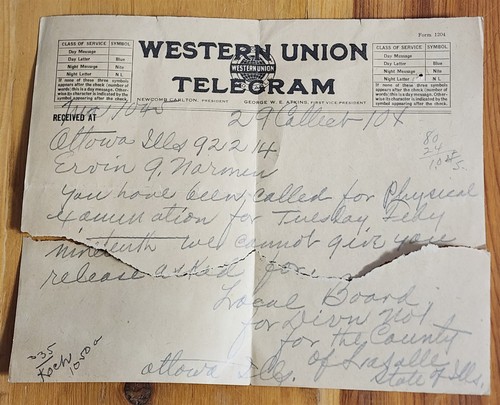 Form 1204
CLASS OF SERVICE SYMBOL
Day Message
Day Letter Blue
Night Message Nite
Night Letter N L
If none of these three symbols appears after the check (number of words) this is a day message. Otherwise its character is indicated by the symbol appearing after the check.
WESTERN UNION
WESTERN UNION
TELEGRAM
NEWCOMB CARLTON, PRESIDENT GEORGE W. E. ATKINS, FIRST VICE-PRESIDENT
CLASS OF SERVICE SYMBOL
Day Message
Day Letter Blue
Night Message Nite
Night Letter N L
If none of these three symbols appears after the check (number of words) this is a day message. Otherwise its character is indicated by the symbol appearing after the check.
RECEIVED AT
29 Collect
Ottowa Ills 922 14
80
24
Ervin G. Norman
You have been called for Physical
Examination for Tuesday Feby
nineteenth we cannot give you
release asked for.
Local Board
for Divn No 1
for the County
of Lasalle
Ottowa Ills. State of Ills.
1050a